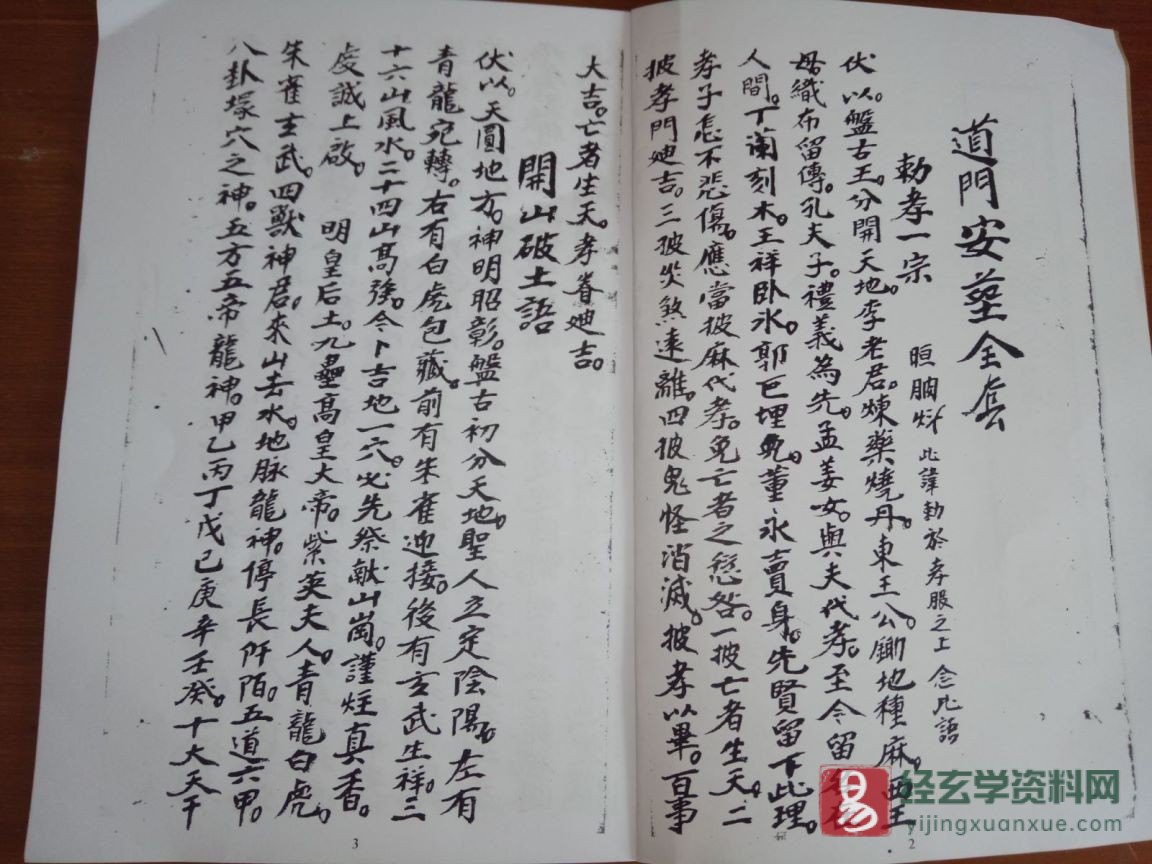 道門安塋全套
勅孝一宗
此諱勅於孝服之上念此語
伏以。盤古王。分開天地。李老君。煉藥燒丹。東王公。鋤地種麻。西王
母。織布留傳。孔夫子。禮義為先。孟姜女。與夫代孝。至今留
人間。丁蘭刻木。王祥卧氷。郭巨埋兒。董永賣身。先賢留下此理。
孝子怎不悲傷。應當披麻代孝。免亡者之愆咎。一披亡者生天。二
披孝門迪吉。三披災煞遠離。四披鬼怪消滅。披孝以畢。百事
大吉。亡者生天。孝眷迪吉。
開山破土語
伏以。天圓地方。神明昭彰。盤古初分天地。聖人立定陰陽。左有
青龍宛轉。右有白虎包藏。前有朱雀迎接。後有玄武生祥。三
十六山風水。二十四山高強。今卜吉地一穴。必先祭献山崗。謹炷真香。
虔誠上啟。 明皇后土。九壘高皇大帝。紫英夫人。青龍白虎。
朱雀玄武。四獸神君。來山去水。地脉龍神。停長阡陌。五道六甲。
八卦塚穴之神。五方五帝龍神。甲乙丙丁戊己庚辛壬癸。十大天干
2
3
易
经玄学资料网
yijingxuanxue.com